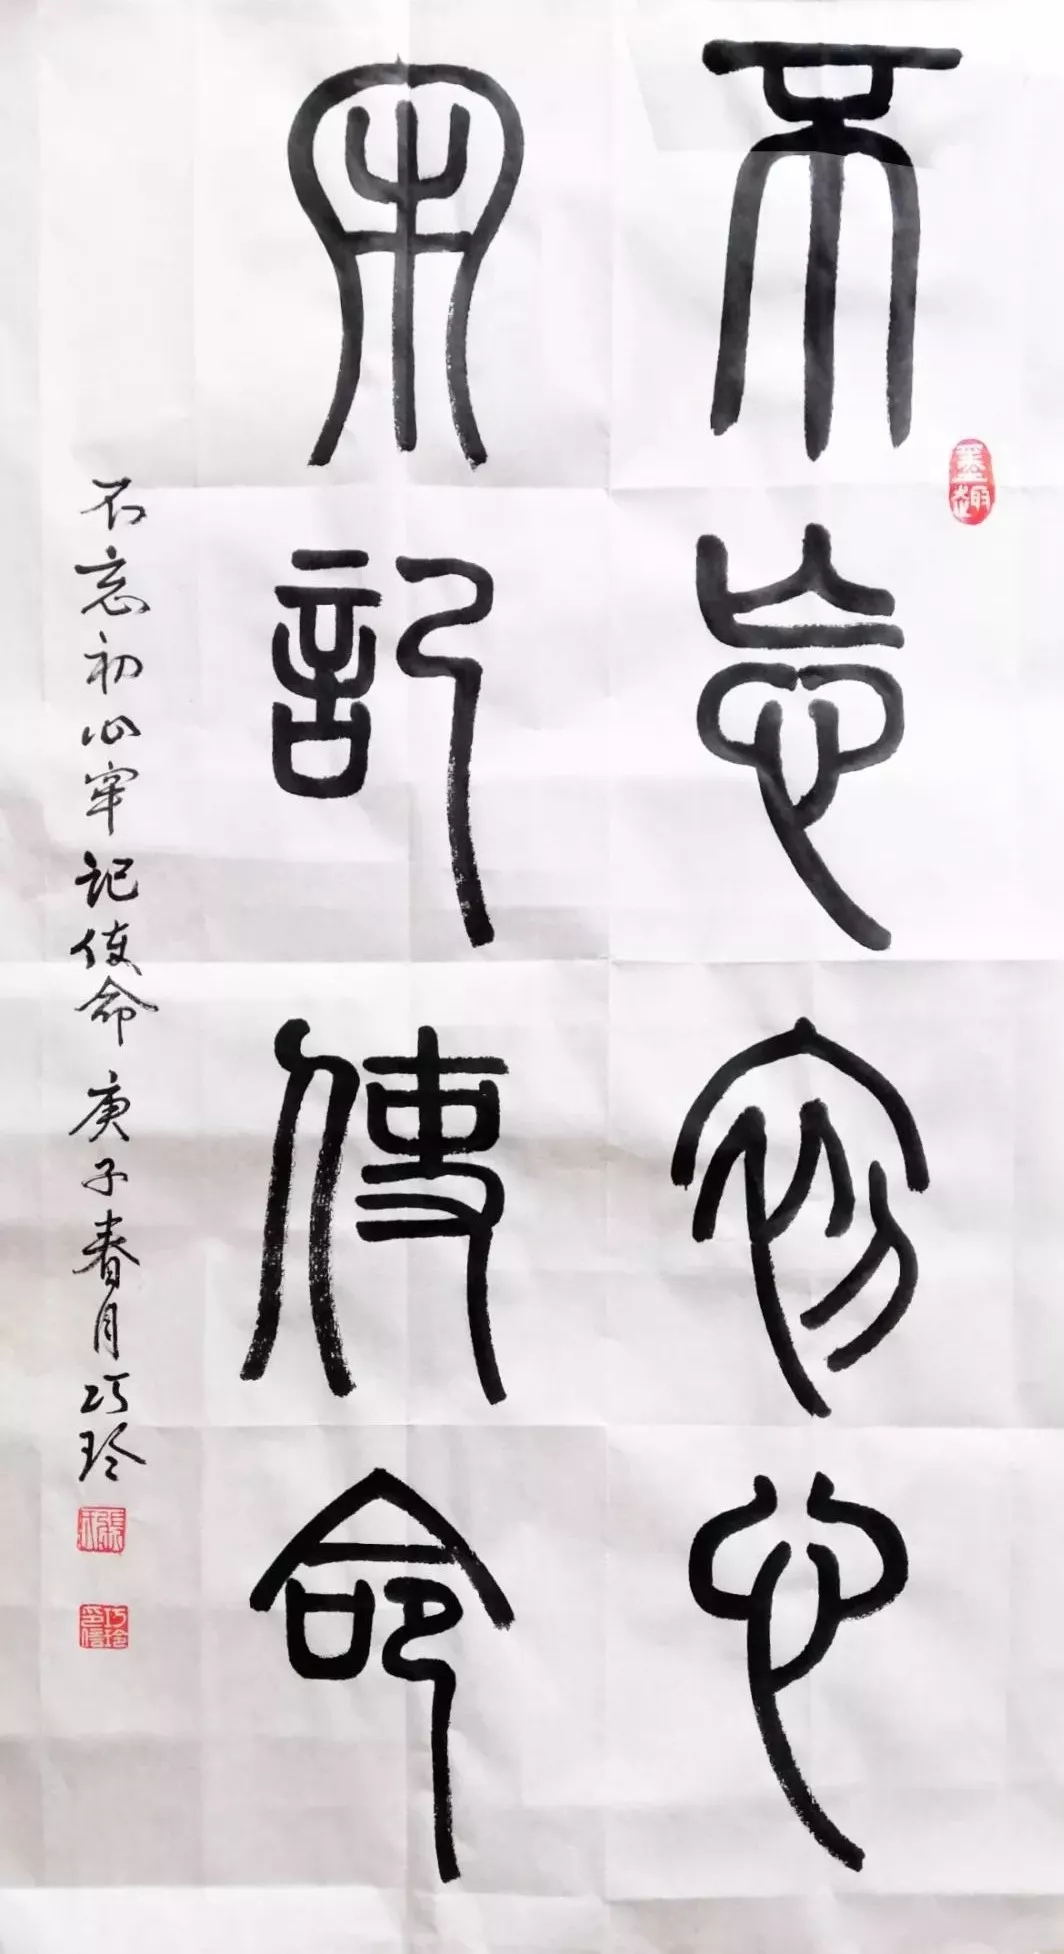 不忘初心
牢記使命
不忘初心牢记使命 庚子春月巧玲
墨趣
巧玲印信